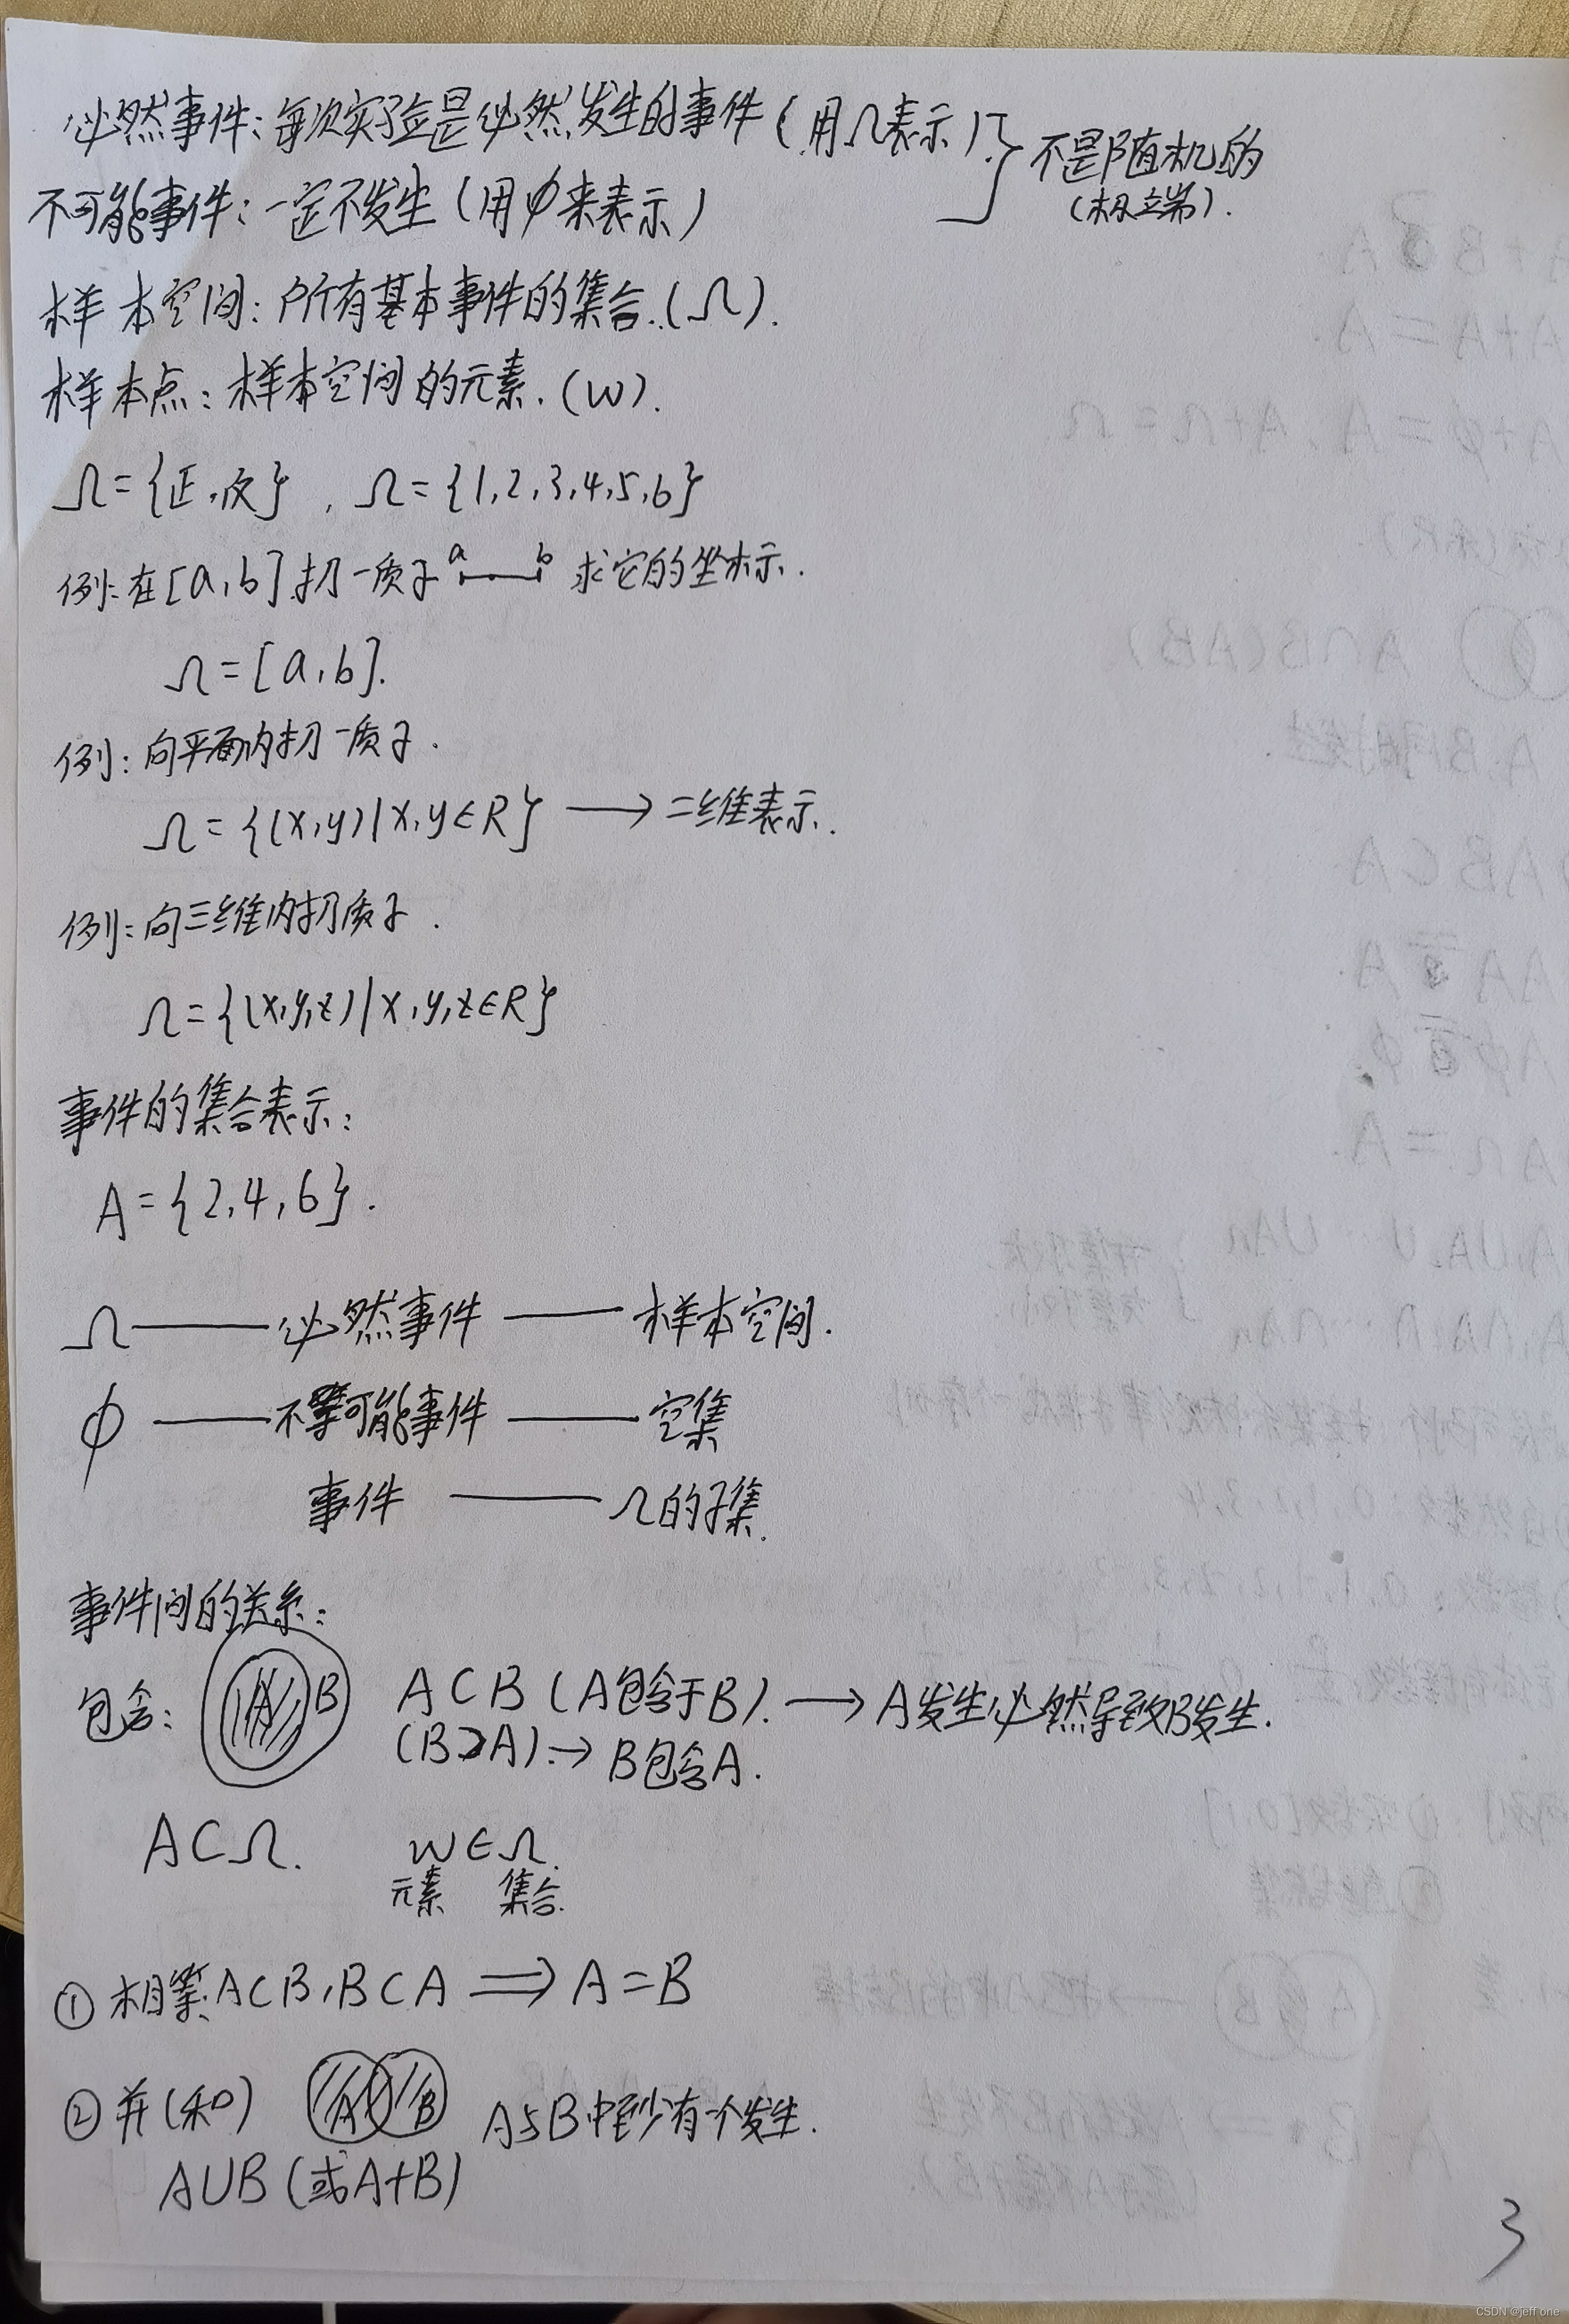 必然事件：每次实验是必然发生的事件（用Ω表示）
不可能事件：一定不发生（用φ来表示）
不是随机的
（极端）.
样本空间：所有基本事件的集合.（Ω）.
样本点：样本空间的元素.（w）.
Ω={正,反} , Ω={1,2,3,4,5,6}
例：在[a,b]扔一质子 a b 求它的坐标.
Ω=[a,b].
例：向平面内扔一质子.
Ω={(x,y)|x,y∈R} → 二维表示.
例：向三维内扔质子.
Ω={(x,y,z)|x,y,z∈R}
事件的集合表示：
A={2,4,6}.
Ω——必然事件——样本空间.
φ——不可能事件——空集
事件——Ω的子集.
事件间的关系：
包含： A B A⊂B（A包含于B）. → A发生必然导致B发生.
（B⊃A）.→ B包含A.
A⊂Ω. w∈Ω.
元素 集合.
① 相等：A⊂B,B⊂A ⟹ A=B
② 并（和） A B A与B中至少有一个发生.
A∪B（或A+B）
3
CSDN @jeff one